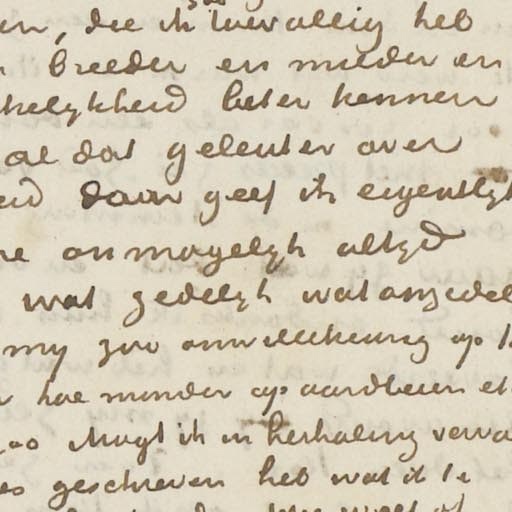 en, die ik toevallig heb
breeder en milder en
kelykheid beter kennen
al dat geleuter over
eid daar geef ik eigentlyk
me onmogelyk altyd
wat zedelyk wat onzedel
my zoo onwillekeurig op
hoe minder op aardbeien et
zoo Mogt ik in herhaling verva
es geschreven heb wat it is